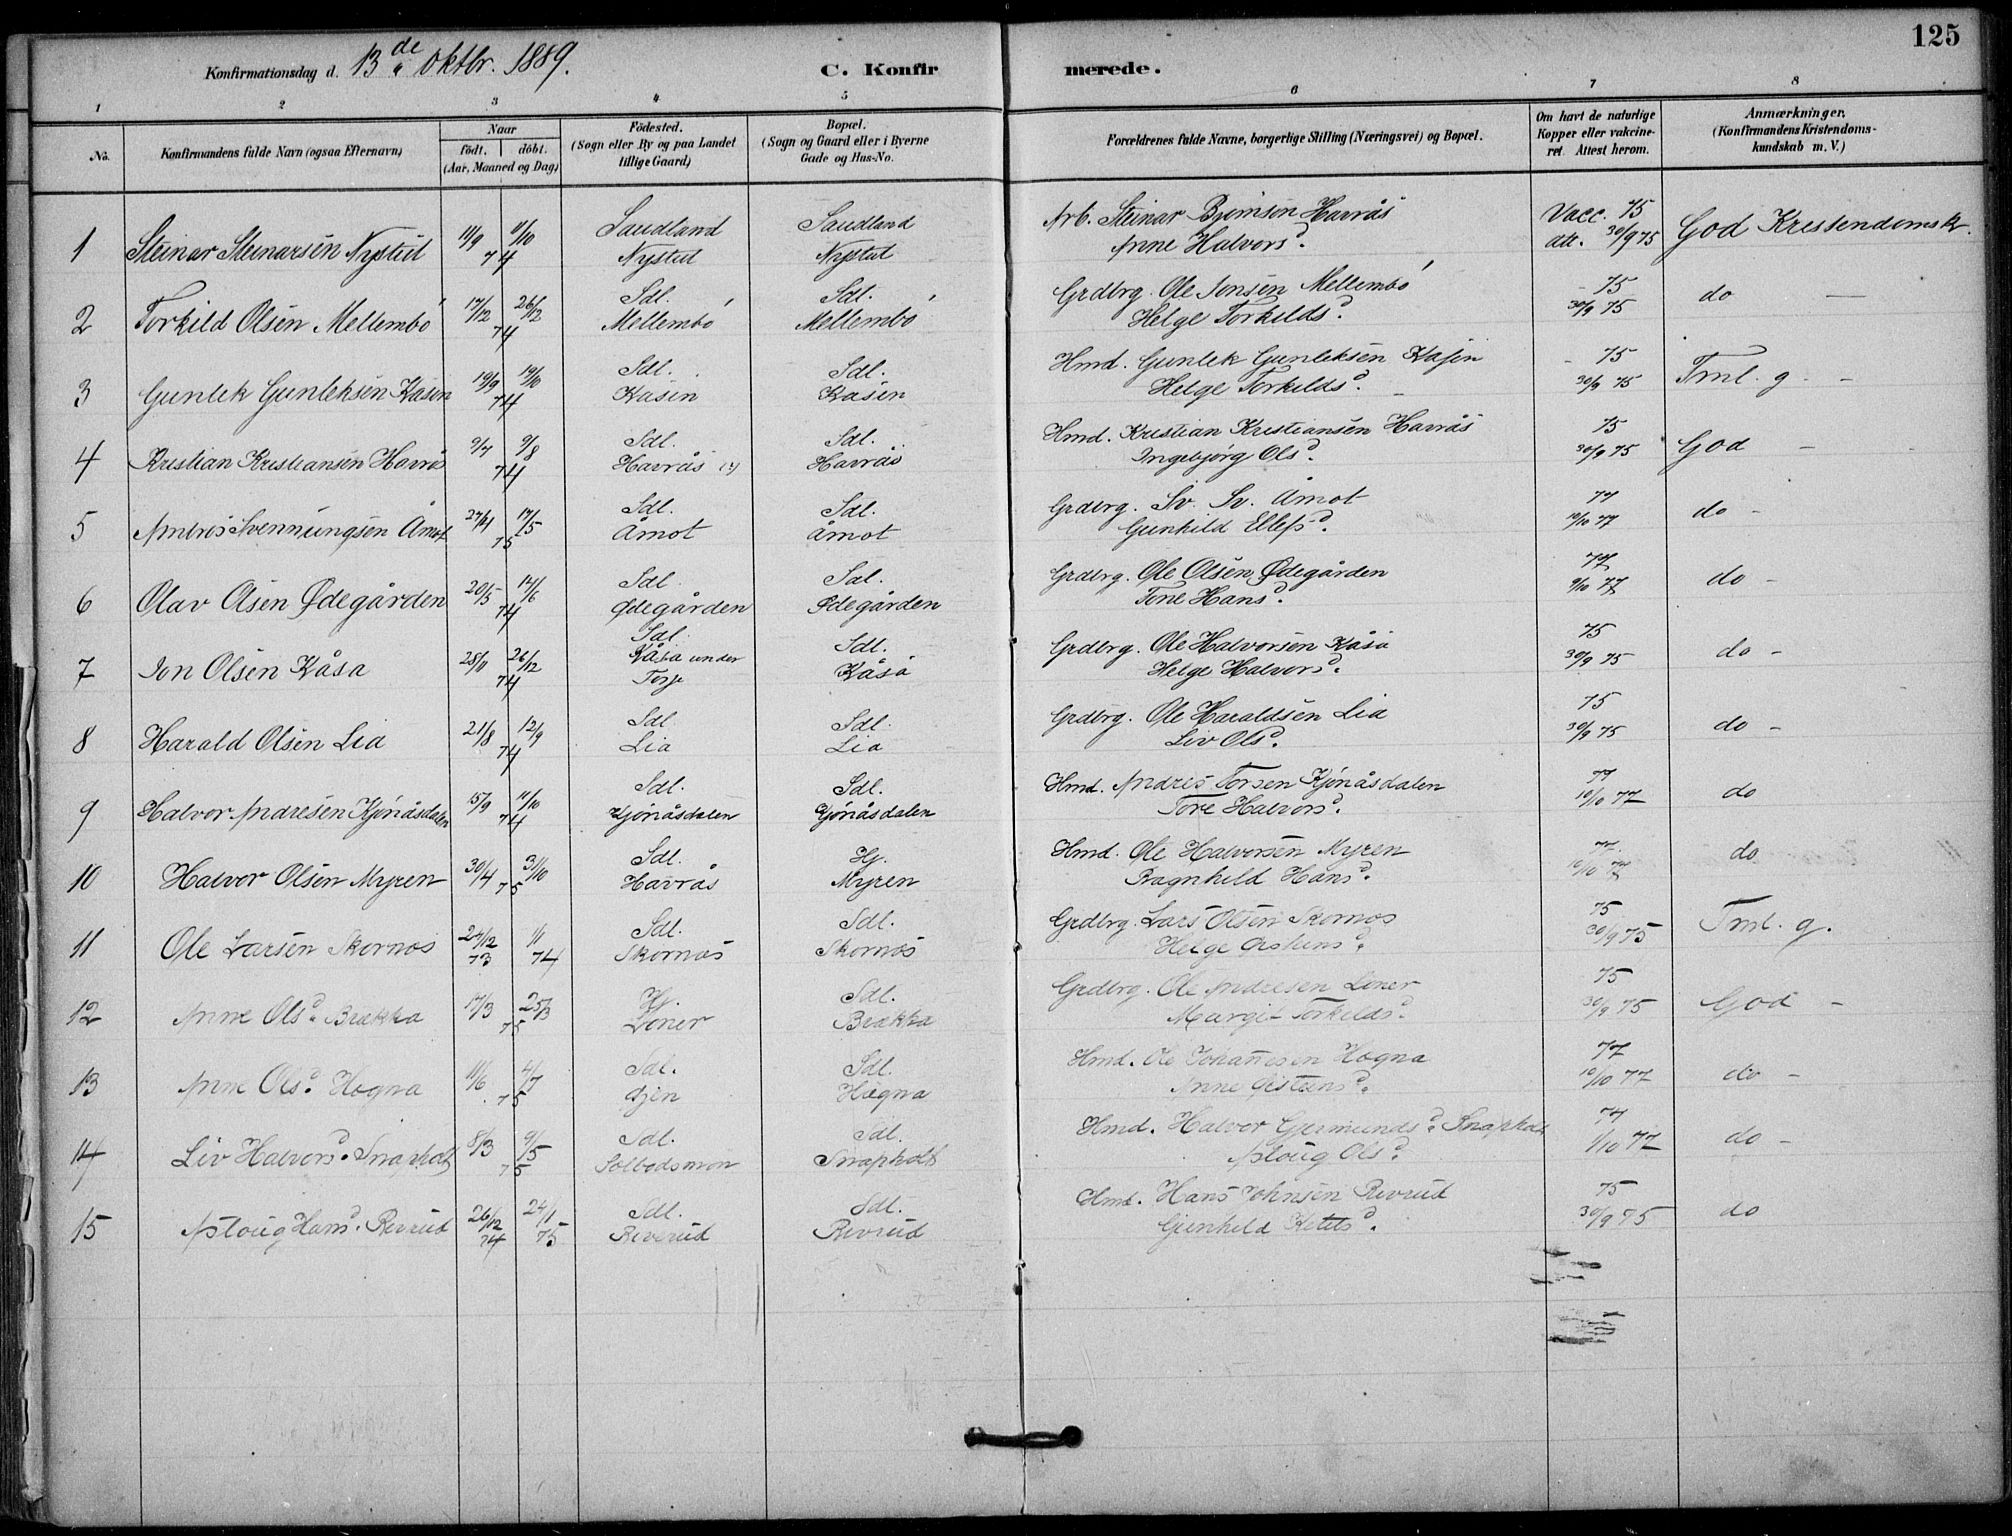 125
Konfirmationsdag d. 13de Oktbr. 1889.
C. Konfirmerede.
1 2 3 4 5 6 7 8
No.
Konfirmandens fulde Navn (ogsaa Efternavn)
Naar
födt. döbt.
(Aar, Maaned og Dag)
Födested.
(Sogn eller By og paa Landet
tillige Gaard)
Bopæl.
(Sogn og Gaard eller i Byerne
Gade og Hus-No.
Forældrenes fulde Navne, borgerlige Stilling (Næringsvei) og Bopæl.
Om havt de naturlige
Kopper eller vakcine-
ret. Attest herom.
Anmærkninger.
(Konfirmandens Kristendoms-
kundskab m. V.)
1 Steinar Steinarsen Nystul 11/9 11/10 74 Saudland Nystul Saudland Nystul Arb. Steinar Bjørnsøn Havrås Anne Halvorsd. Vacc. 75 att. 30/9 75 God Kristendomsk.
2 Torkild Olsen Mellembö 17/12 26/12 74 Sdl. Mellembö Sdl. Mellembö Grdbrg. Ole Jonsen Mellembö Helge Torkildsd. - 75 30/9 75 do —
3 Gunlek Gunleksen Kåsin 19/9 19/10 74 Sdl. Kåsin Sdl. Kåsin Hmd. Gunlek Gunleksen Kåsin Helge Torkildsd. - 75 30/9 75 Tml. g. -
4 Kristian Kristiansen Havrås 9/7 9/8 74 Sdl. Havrås Sdl. Havrås Hmd. Kristian Kristiansen Havrås Ingebjørg Olsd. 75 30/9 75 God -
5 Ambros Svennungsen Åmot 27/4 17/5 75 Sdl. Åmot Sdl. Åmot Grdbrg. Sv. Sv. Åmot Gunhild Ellefsd. 77 10/10 77 do -
6 Olav Olsen Ødegården 20/5 14/6 74 Sdl. Ødegården Sdl. Ødegården Grdbrg. Ole Olsen Ødegården Tone Hansd. 77 9/10 77 do -
7 Jon Olsen Kåsa 28/11 26/12 74 Sdl. Kåsa under Torje Sdl. Kåsa Grdbrg. Ole Halvorsen Kåsa Helge Halvorsd. 75 30/9 75 do -
8 Harald Olsen Lia 21/8 12/9 74 Sdl. Lia Sdl. Lia Grdbrg. Ole Haraldsen Lia Liv Olsd. 75 30/9 75 do -
9 Halvor Andresen Kjönåsdalen 15/9 11/10 74 Sdl. Kjönåsdalen Sdl. Gjönåsdalen Hmd. Andres Torsen Kjönåsdalen Tore Halvorsd. 77 10/10 77 do
10 Halvor Olsen Myren 30/4 3/10 75 Sdl. Havrås Hj. Myren Hmd. Ole Halvorsen Myren Ragnhild Hansd. 77. 10/10 77 do
11 Ole Larsen Skornos 24/12 73 1/1 74 Sdl. Skornos Sdl. Skornos Grdbrg. Lars Olsen Skornos Helge 75 30/9 75 Tml. g.
12 Anne Olsd. Brækka 17/3 25/3 75 Hj. Löner Sdl. Brækka Grdbrg. Ole Andresen Löner Margit Torkildsd. 75 30/9 75 God -
13 Anne Olsd. Høgna 11/6 4/7 75 Sdl. Sdl. Høgna Hmd. Ole Johannesen Høgna Anne Østensd. 77 10/10 77 do -
14 Liv Halvorsd. Snapholt 8/3 9/5 75 Sdl. Sdl. Snapholt Hmd. Halvor Gjermundsd. Snapholt Asloug Olsd. 77 1/10 77 do -
15 Asloug Hansd. Revrud 26/12 74 24/1 75 Sdl. Revrud Sdl. Revrud Hmd. Hans Johnsen Revrud Gunhild Ketilsd. 75 30/9 75 do